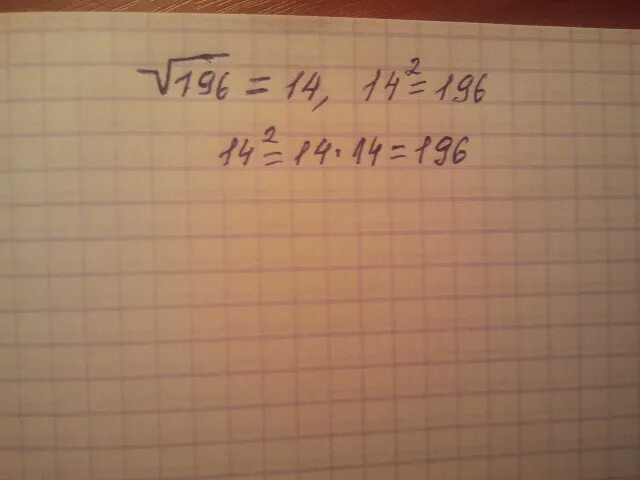 √196 = 14, 14² = 196
14² = 14 · 14 = 196